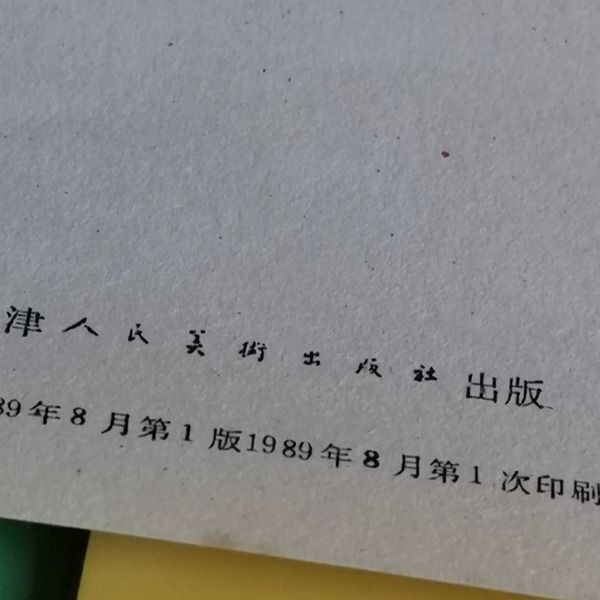 津人民美術出版社出版
89年8月第1版1989年8月第1次印刷